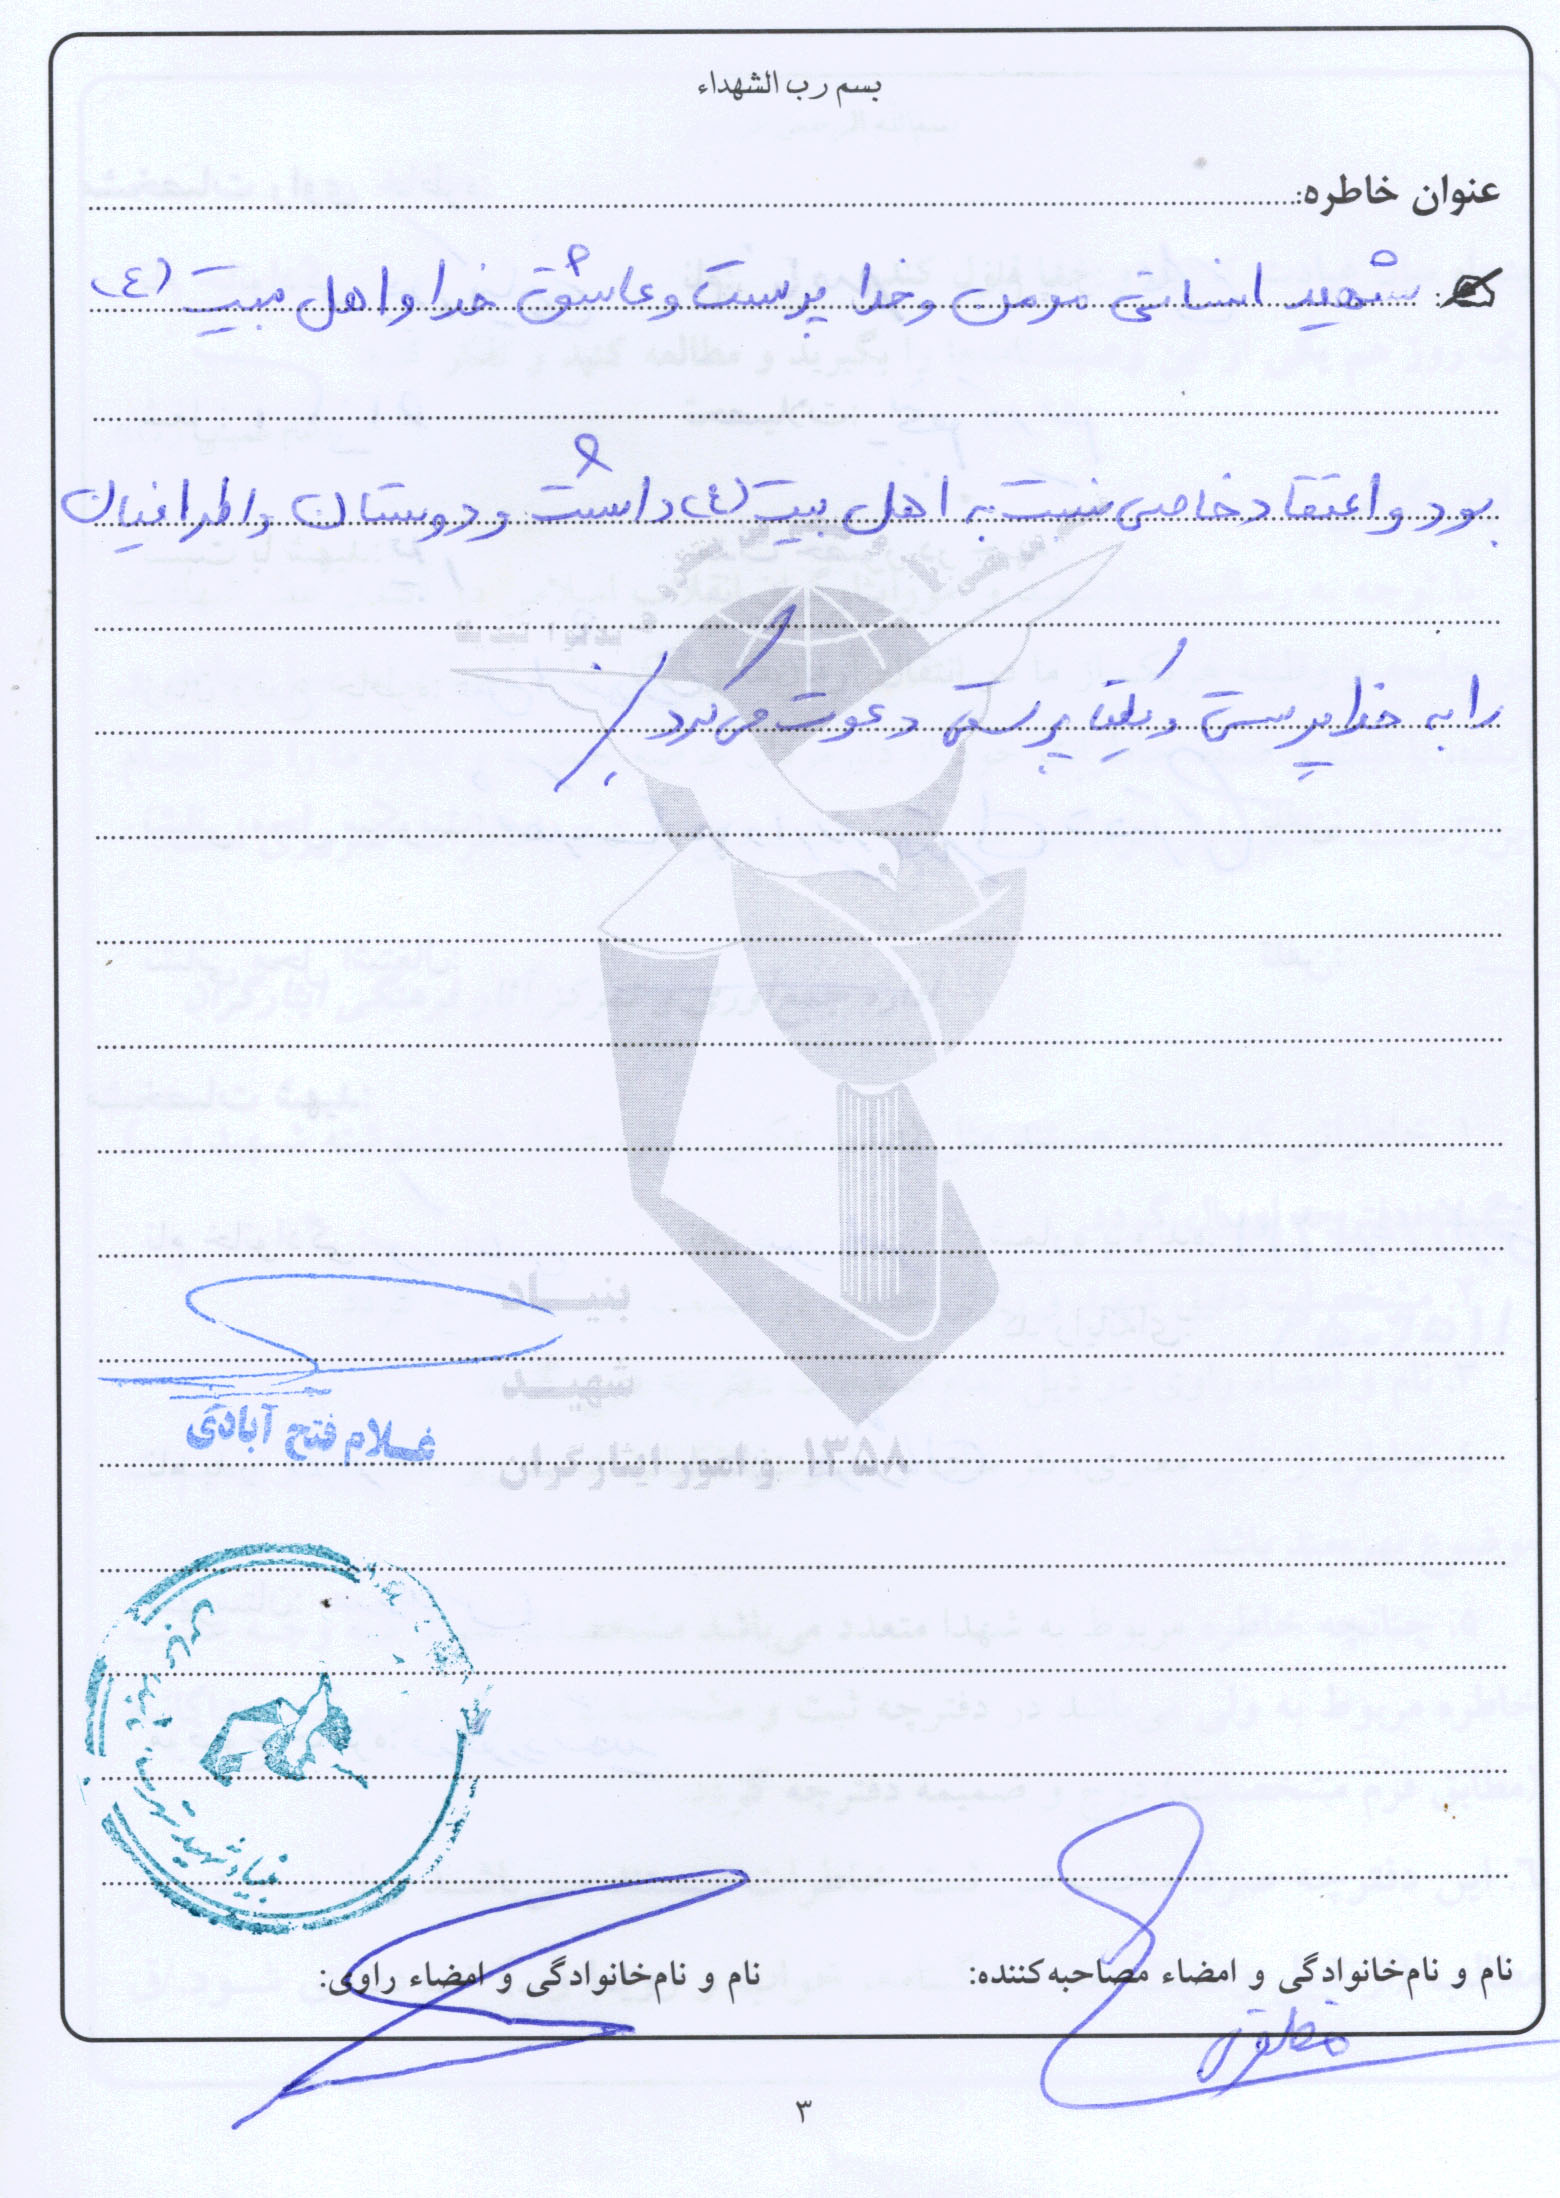 بسم رب الشهداء
عنوان خاطره:
شهید انسانی مومن و خدا پرست و عاشق خدا و اهل بیت (ع)
بود و اعتقاد خاصی نسبت به اهل بیت (ع) داشت و دوستان و اطرافیان
را به خداپرستی و یکتا پرستی دعوت می کرد.
بنیاد
شهید
۱۳۵۸ و امور ایثارگران
غلام فتح آبادی
بنیاد شهید
نام و نام‌خانوادگی و امضاء مصاحبه‌کننده:
نام و نام‌خانوادگی و امضاء راوی:
۳